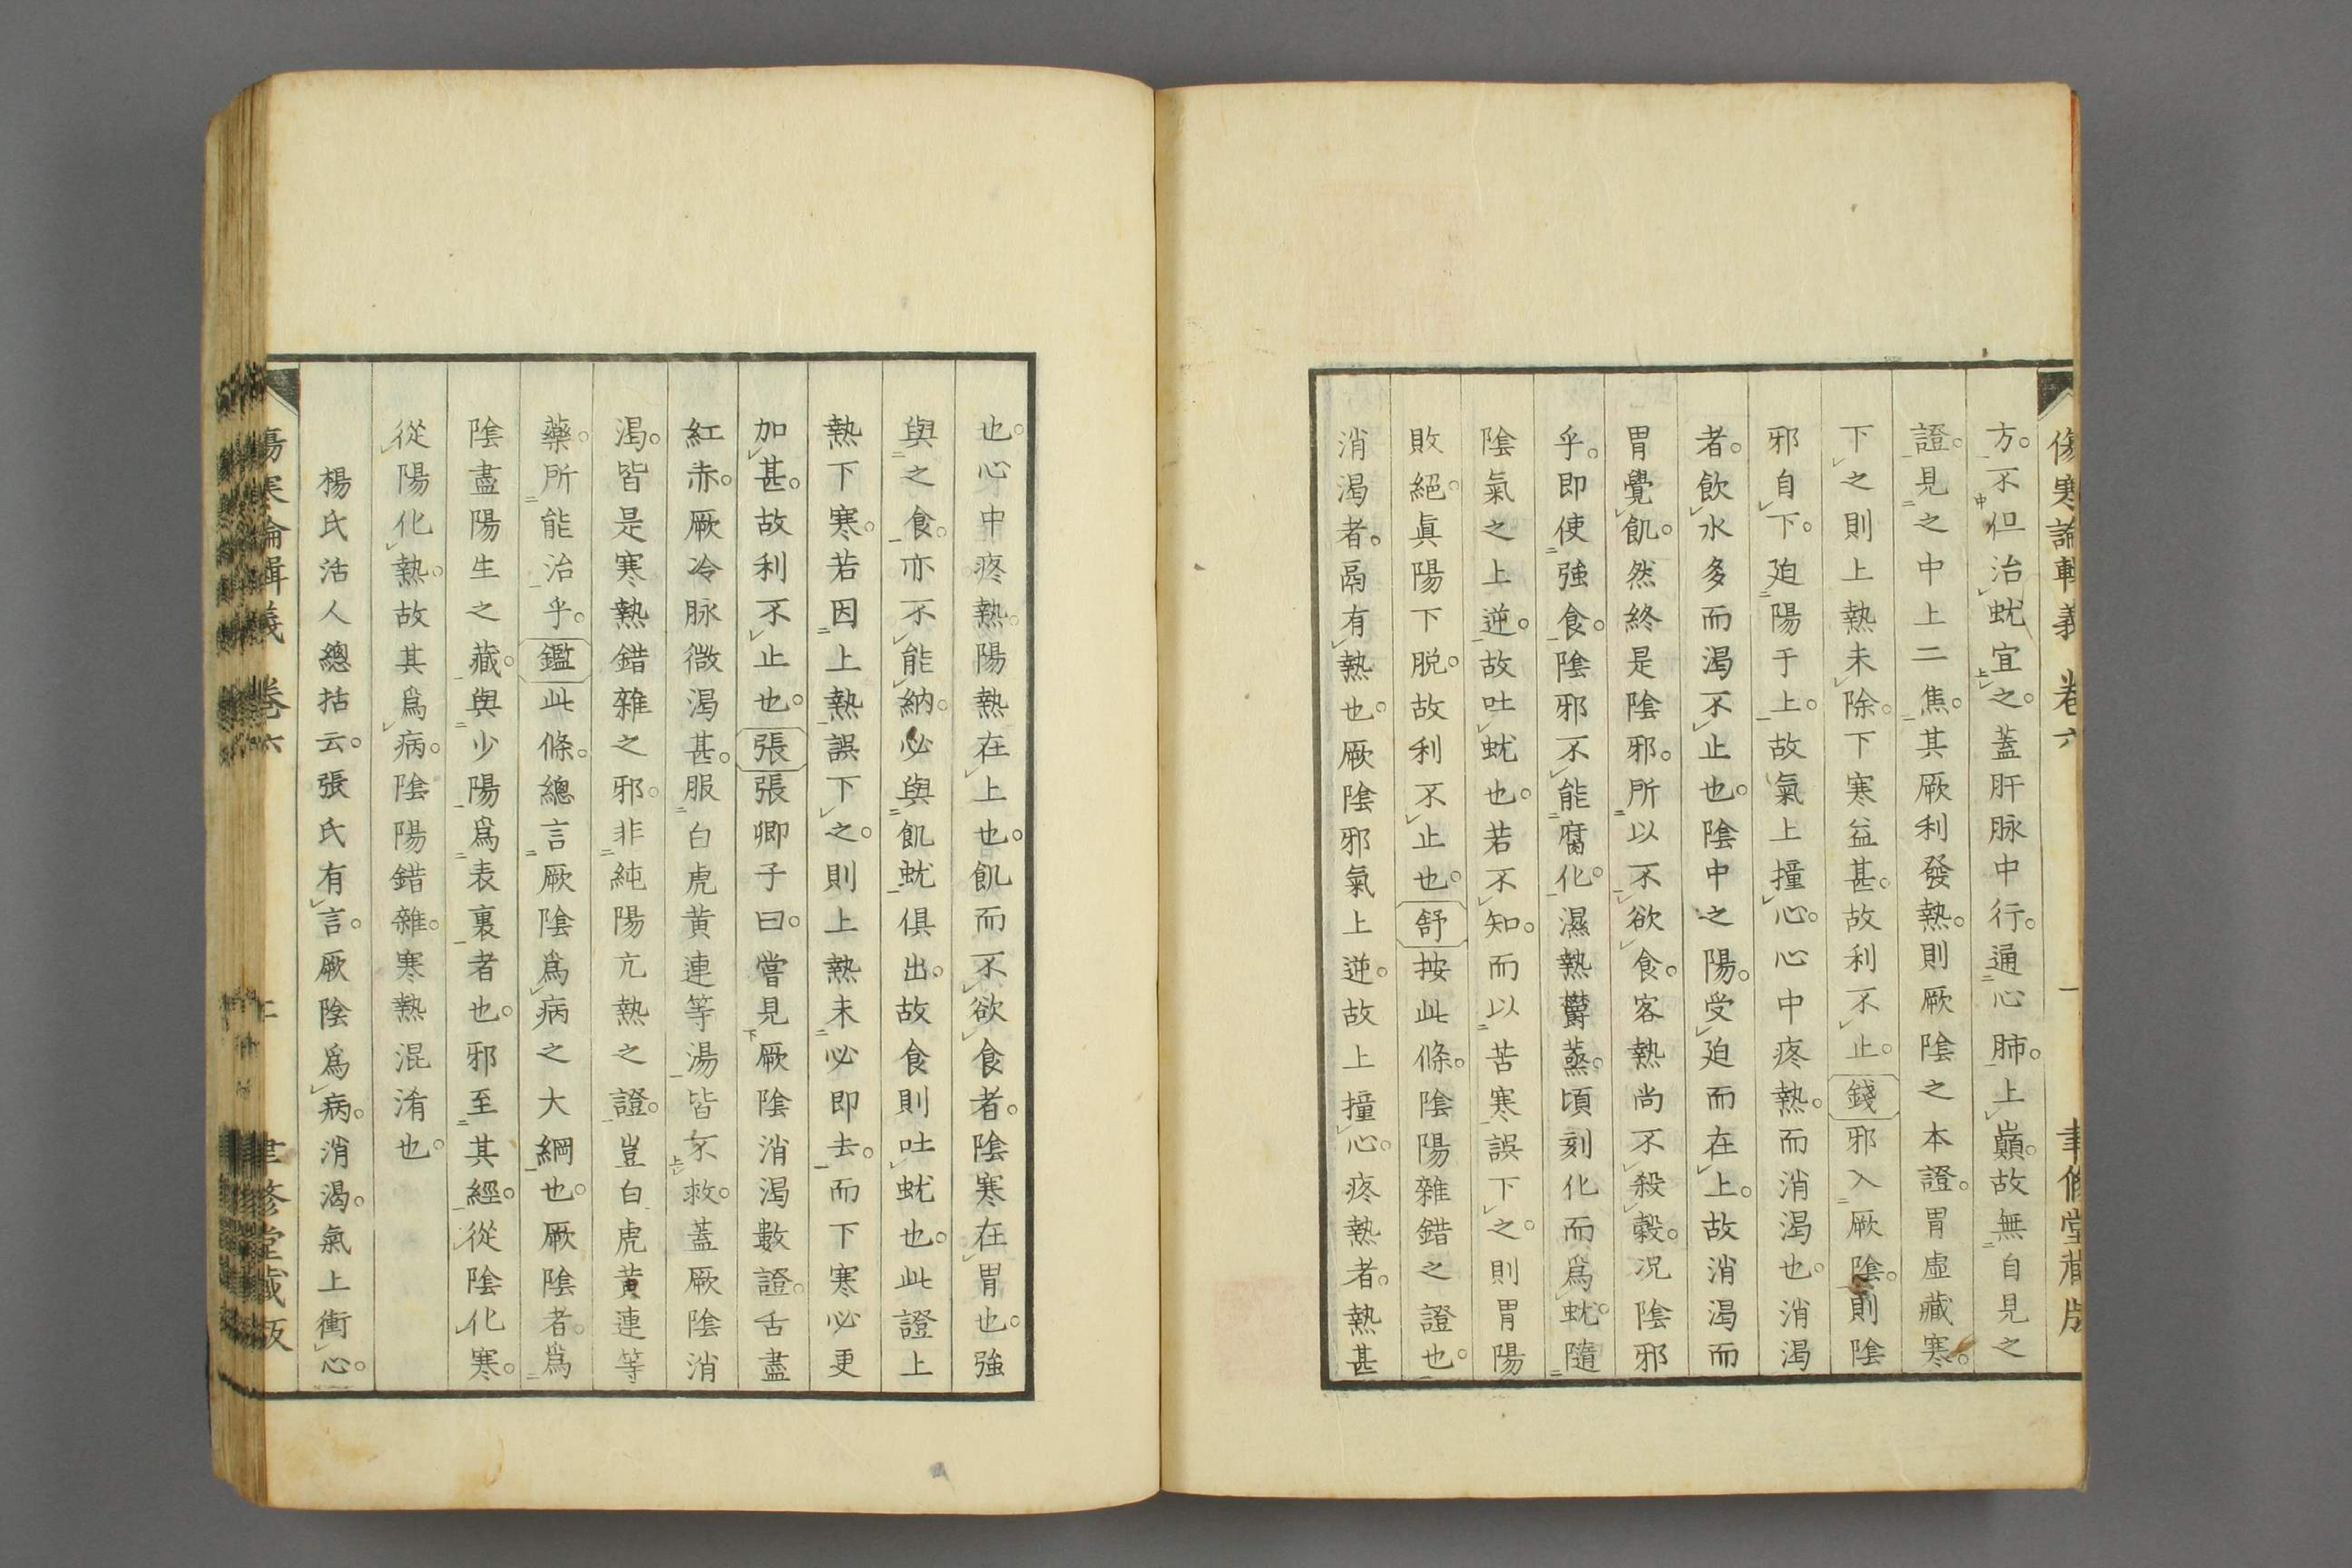 傷寒論輯義 卷六 一 聿修堂藏版
方。不但治蚘宜之。蓋肝脉中行。通心肺。上巓。故無自見之
證。見之中上二焦。其厥利發熱。則厥陰之本證。胃虛藏寒。
下之則上熱未除。下寒益甚。故利不止。錢邪入厥陰。則陰
邪自下。廹陽于上。故氣上撞心。心中疼熱。而消渴也。消渴
者。飲水多而渴不止也。陰中之陽。受廹而在上。故消渴而
胃覺飢。然終是陰邪。所以不欲食。客熱尚不殺穀。况陰邪
乎。即使強食。陰邪不能腐化。濕熱欝蒸。頃刻化而爲蚘。隨
陰氣之上逆。故吐蚘也。若不知。而以苦寒誤下之。則胃陽
敗絕。眞陽下脱。故利不止也。舒按此條。陰陽雜錯之證也。
消渴者。鬲有熱也。厥陰邪氣上逆。故上撞心。疼熱者。熱甚
也。心中疼熱。陽熱在上也。飢而不欲食者。陰寒在胃也。強
與之食。亦不能納。必與飢蚘俱出。故食則吐蚘也。此證上
熱下寒。若因上熱誤下之。則上熱未必即去。而下寒必更
加甚。故利不止也。張張卿子曰。嘗見厥陰消渴數證。舌盡
紅赤。厥冷脉微渴甚。服白虎黄連等湯皆不救。蓋厥陰消
渴。皆是寒熱錯雜之邪。非純陽亢熱之證。豈白虎黄連等
藥。所能治乎。鑑此條。總言厥陰爲病之大綱也。厥陰者。爲
陰盡陽生之藏。與少陽爲表裏者也。邪至其經。從陰化寒。
從陽化熱。故其爲病。陰陽錯雜。寒熱混淆也。
楊氏活人總括云。張氏有言。厥陰爲病。消渴。氣上衝心。
傷寒論輯義 卷六 聿修堂藏版